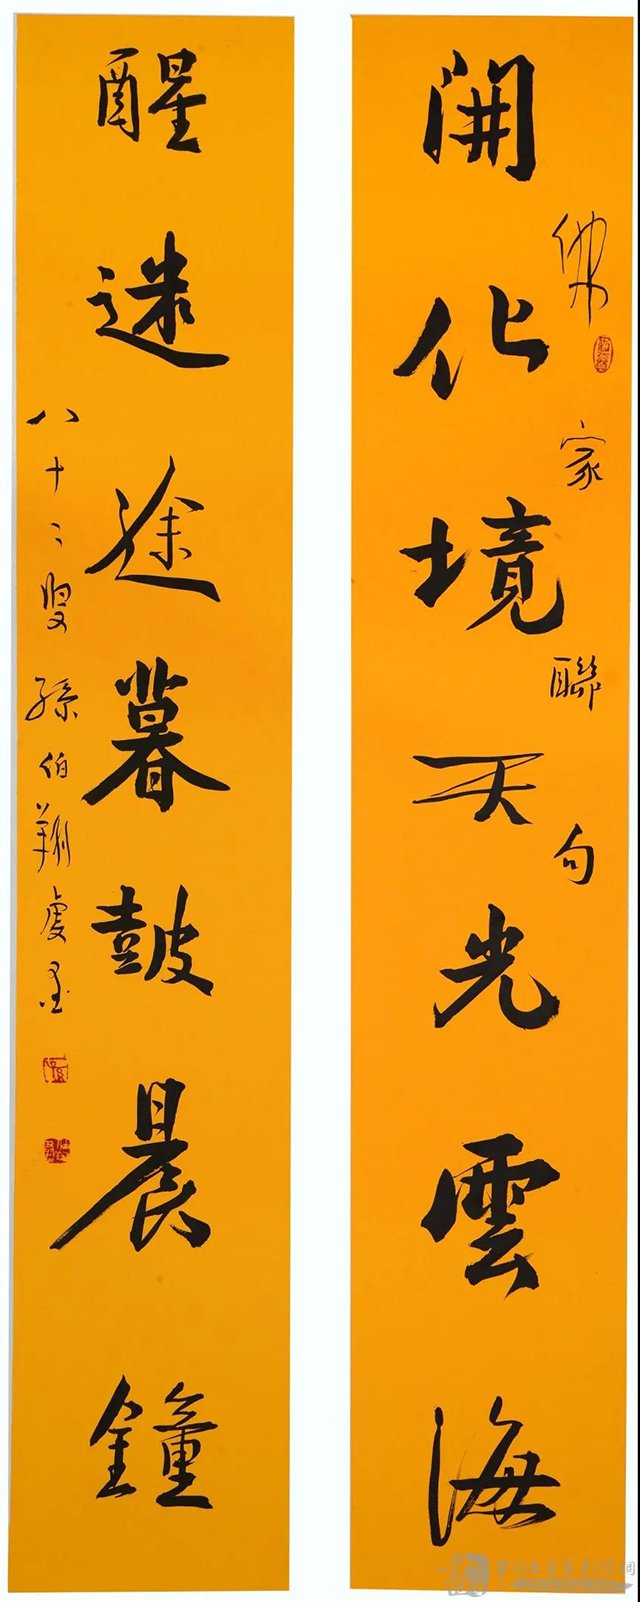 開化境天光雲海
佛家聯句
醒迷途暮鼓晨鐘
八十二叟孫伯翔虔墨